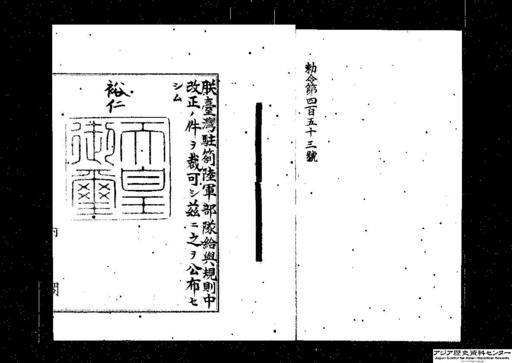 勅令第四百五十三號
朕臺灣駐箚陸軍部隊給與規則中
改正ノ件ヲ裁可シ茲ニ之ヲ公布セ
シム
裕仁
天皇
御璽
内閣
アジア歴史資料センター
Japan Center for Asian Historical Records